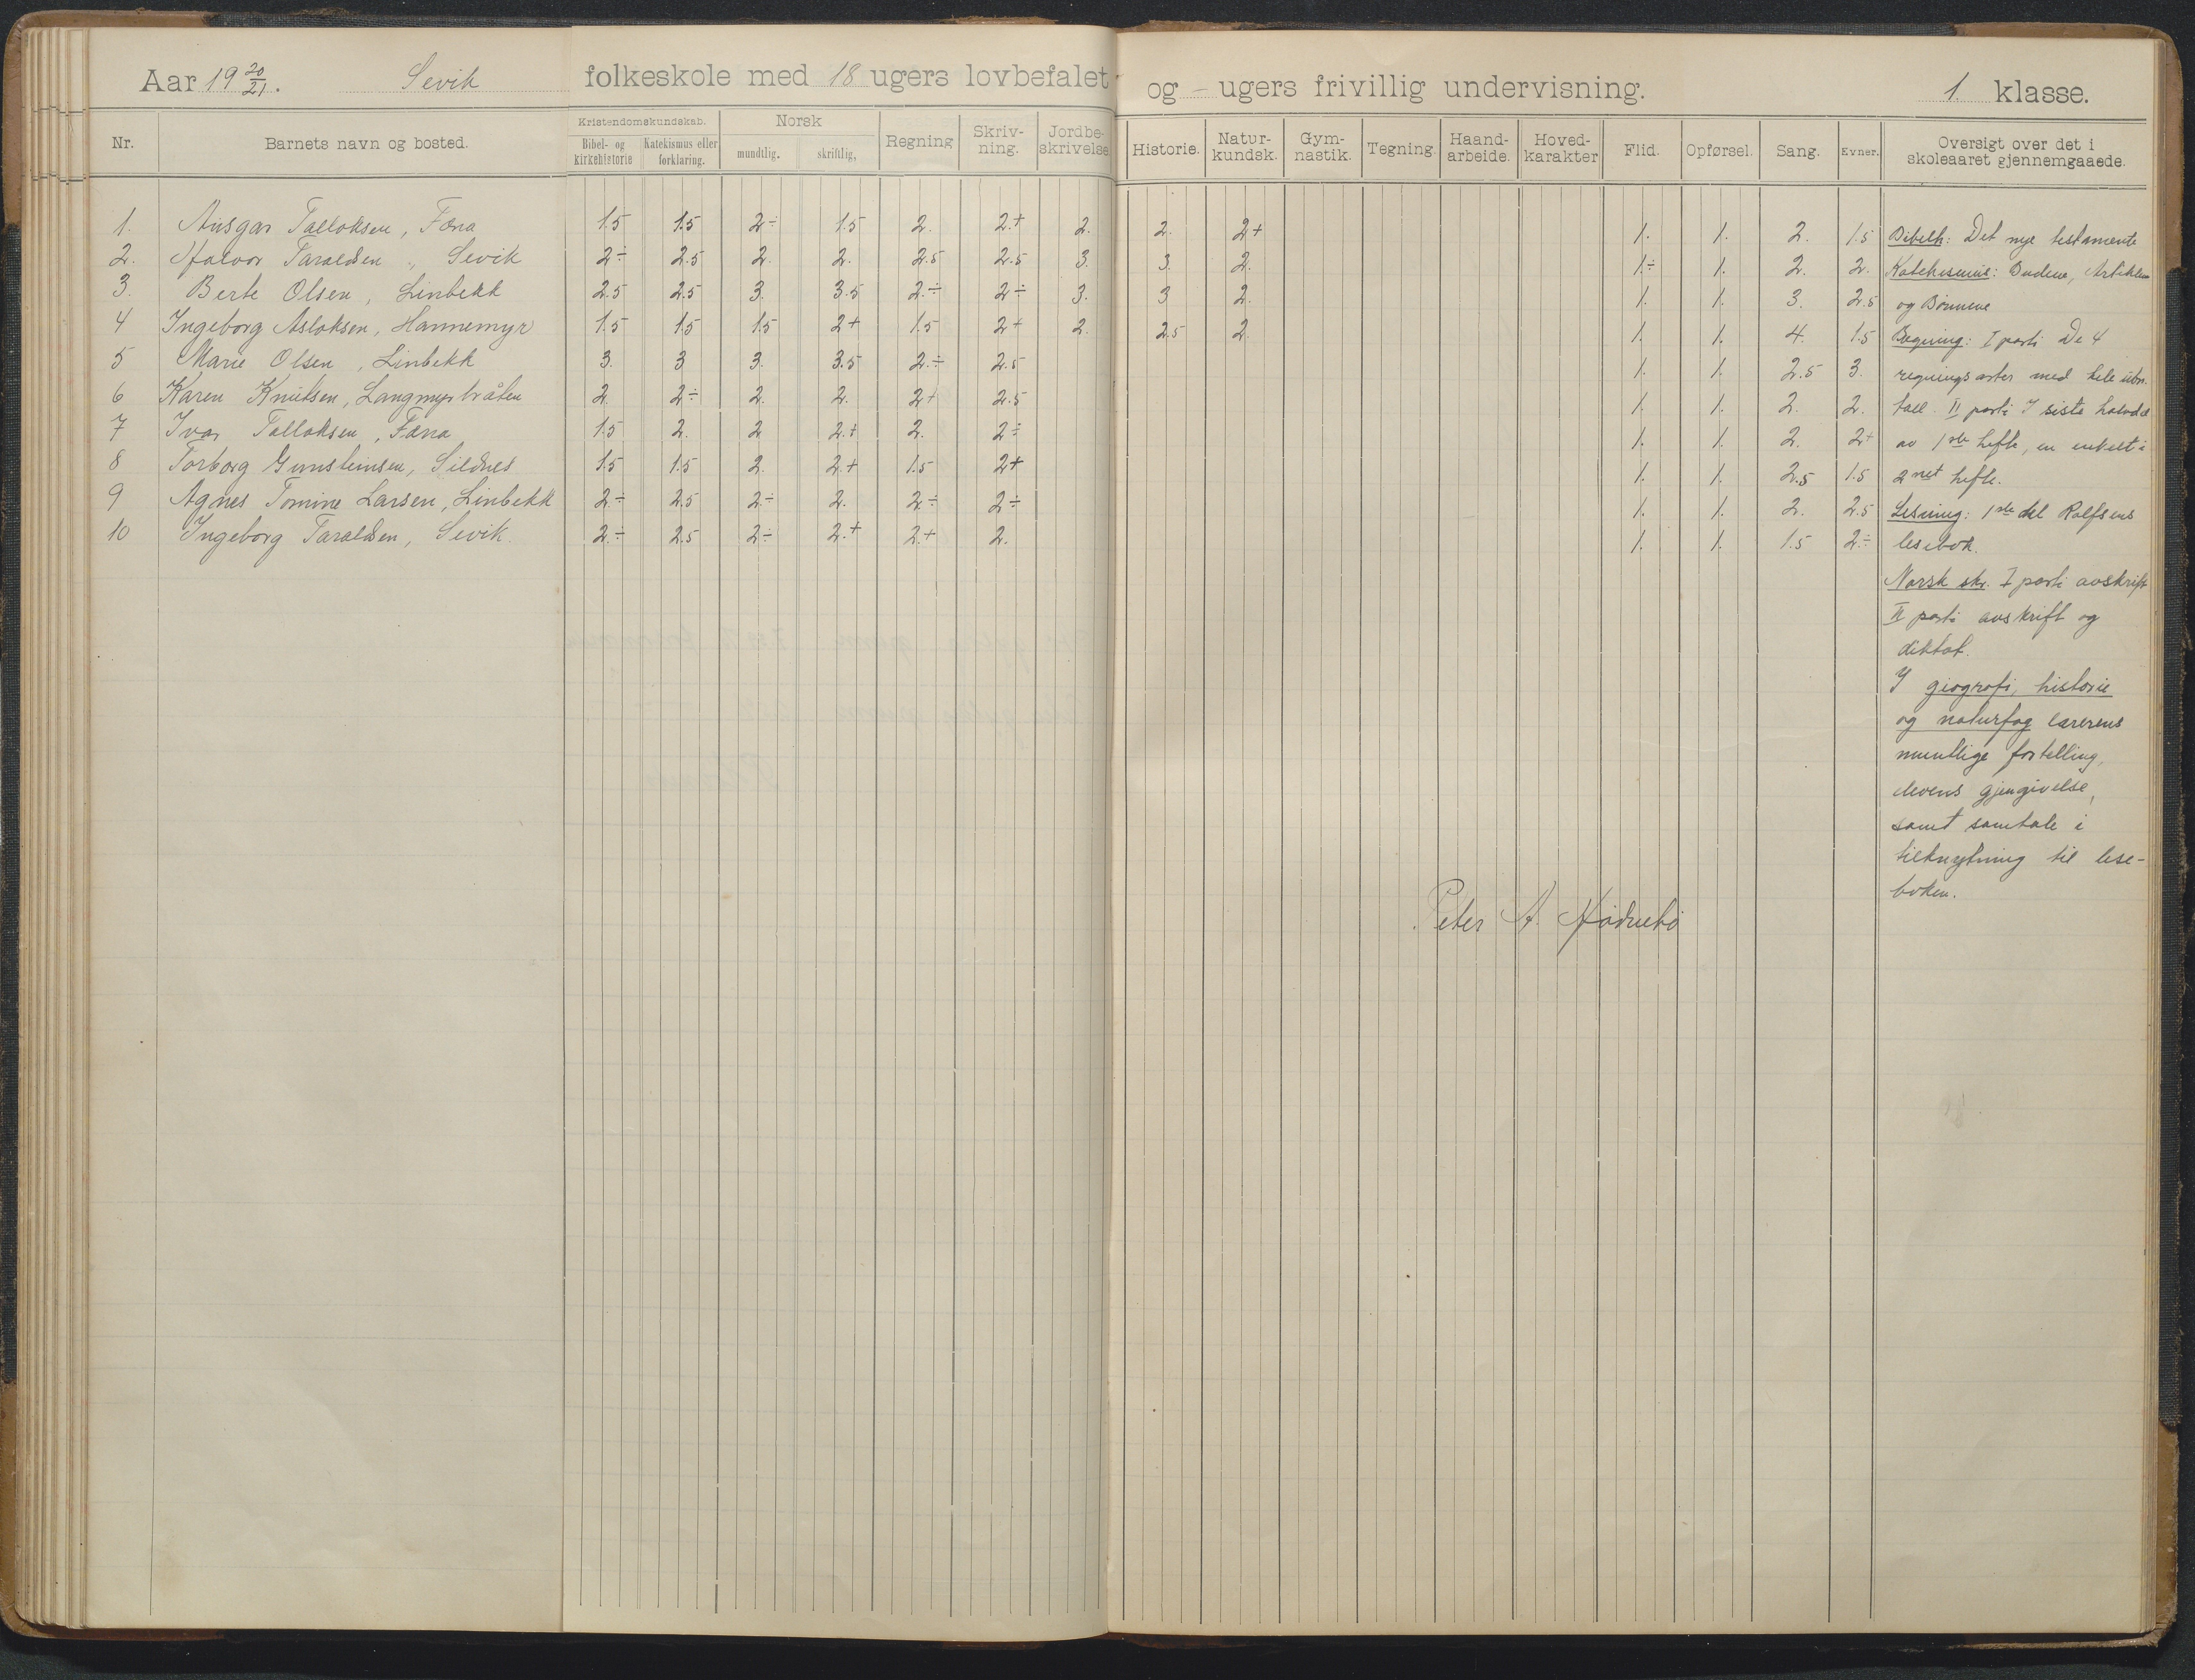 Aar 19 20/21. Sevik folkeskole med 18 ugers lovbefalet og - ugers frivillig undervisning. 1. klasse.
Nr. Barnets navn og bosted. Kristendomskundskab. Bibel- og kirkehistorie Katekismus eller forklaring. Norsk mundtlig. skriftlig. Regning Skriv-ning. Jordbe-skrivelse Historie. Natur-kundsk. Gym-nastik. Tegning. Haand-arbeide. Hoved-karakter Flid. Opførsel. Sang. Evner. Oversigt over det i skoleaaret gjennemgaaede.
1. Ansgar Talloksen, Fæna 1.5 1.5 2÷ 1.5 2. 2.+ 2. 2. 2+ 1. 1. 2. 1.5
2. Halvor Taraldsen, Sevik 2÷ 2.5 2. 2. 2.5 2.5 3. 3. 2. 1÷ 1. 2. 2.
3. Berte Olsen, Linbekk 2.5 2.5 3. 3.5 2.÷ 2÷ 3. 3 2. 1. 1. 3. 2.5
4 Ingeborg Asloksen, Hannemyr 1.5 1.5 1.5 2+ 1.5 2+ 2. 2.5 2. 1. 1. 4. 1.5
5 Marie Olsen, Linbekk 3. 3 3. 3.5 2.÷ 2.5 1. 1. 2.5 3.
6 Karen Knutsen, Langmyrbråten 2. 2÷ 2. 2. 2+ 2.5 1. 1. 2. 2.
7 Ivar Talloksen, Fæna 1.5 2. 2 2.+ 2. 2÷ 1. 1. 2. 2+
8 Torborg Gunsteinsen, Sildnes 1.5 1.5 2. 2.+ 1.5 2+ 1. 1. 2.5 1.5
9 Agnes Tomine Larsen, Linbekk 2÷ 2.5 2÷ 2. 2÷ 2÷ 1. 1. 2. 2.5
10 Ingeborg Taraldsen, Sevik. 2÷ 2.5 2÷ 2.+ 2.+ 2. 1. 1. 1.5 2÷
Bibelh: Det nye testamente
Katekismus: Budene, Artiklene
og Bønnene
Regning: I parti De 4
regningsarter med hele ubn.
tall. II parti I siste halvdel
av 1ste hefte, en enkelt i
2net hefte.
Lesning: 1ste del Rolfsens
lesebok.
Norsk skr. I parti avskrift
II parti avskrift og
diktat.
I giografi, historie
og naturfag lærerens
muntlige fortelling,
elevens gjengivelse,
samt samtale i
tilknytning til lese-
boken.
Peter A. Hødnebø